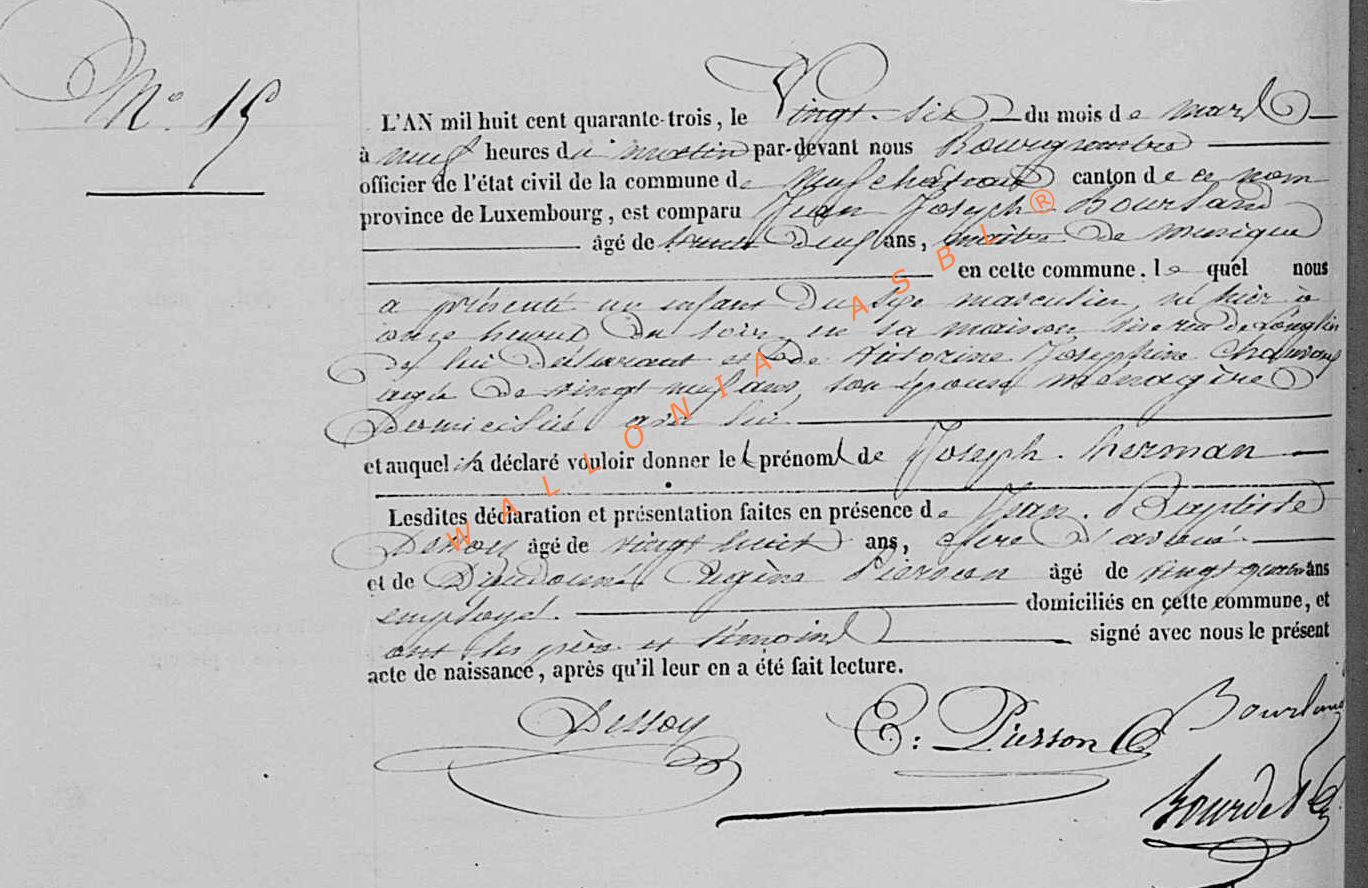 N.º 15
L'AN mil huit cent quarante-trois, le Vingt-six du mois de mars
à neuf heures du matin par-devant nous Bourgmestre
officier de l'état civil de la commune de Neufchateau canton de ce nom
province de Luxembourg, est comparu Jean Joseph Bourland
âgé de trente neuf ans, maitre de musique
en cette commune. le quel nous
a présenté un enfant du sexe masculin, né hier à
onze heures du soir, en sa maison sise rue de Longlier
de lui déclarant et de Victorine Josephine
agée de vingt neuf ans, son épouse ménagère
domiciliée avec lui.
et auquel il a déclaré vouloir donner le prénom de Joseph-herman
Lesdites déclaration et présentation faites en présence de Jean-Baptiste
Dessoy âgé de vingt huit ans, clerc d'avoué
et de Dieudonné Eugène Pierson âgé de vingt quatre ans
employé. domiciliés en cette commune, et
ont les père et témoins signé avec nous le présent
acte de naissance, après qu'il leur en a été fait lecture.
Dessoy E: Pierson Bourland
WALLONIA ASBL ®